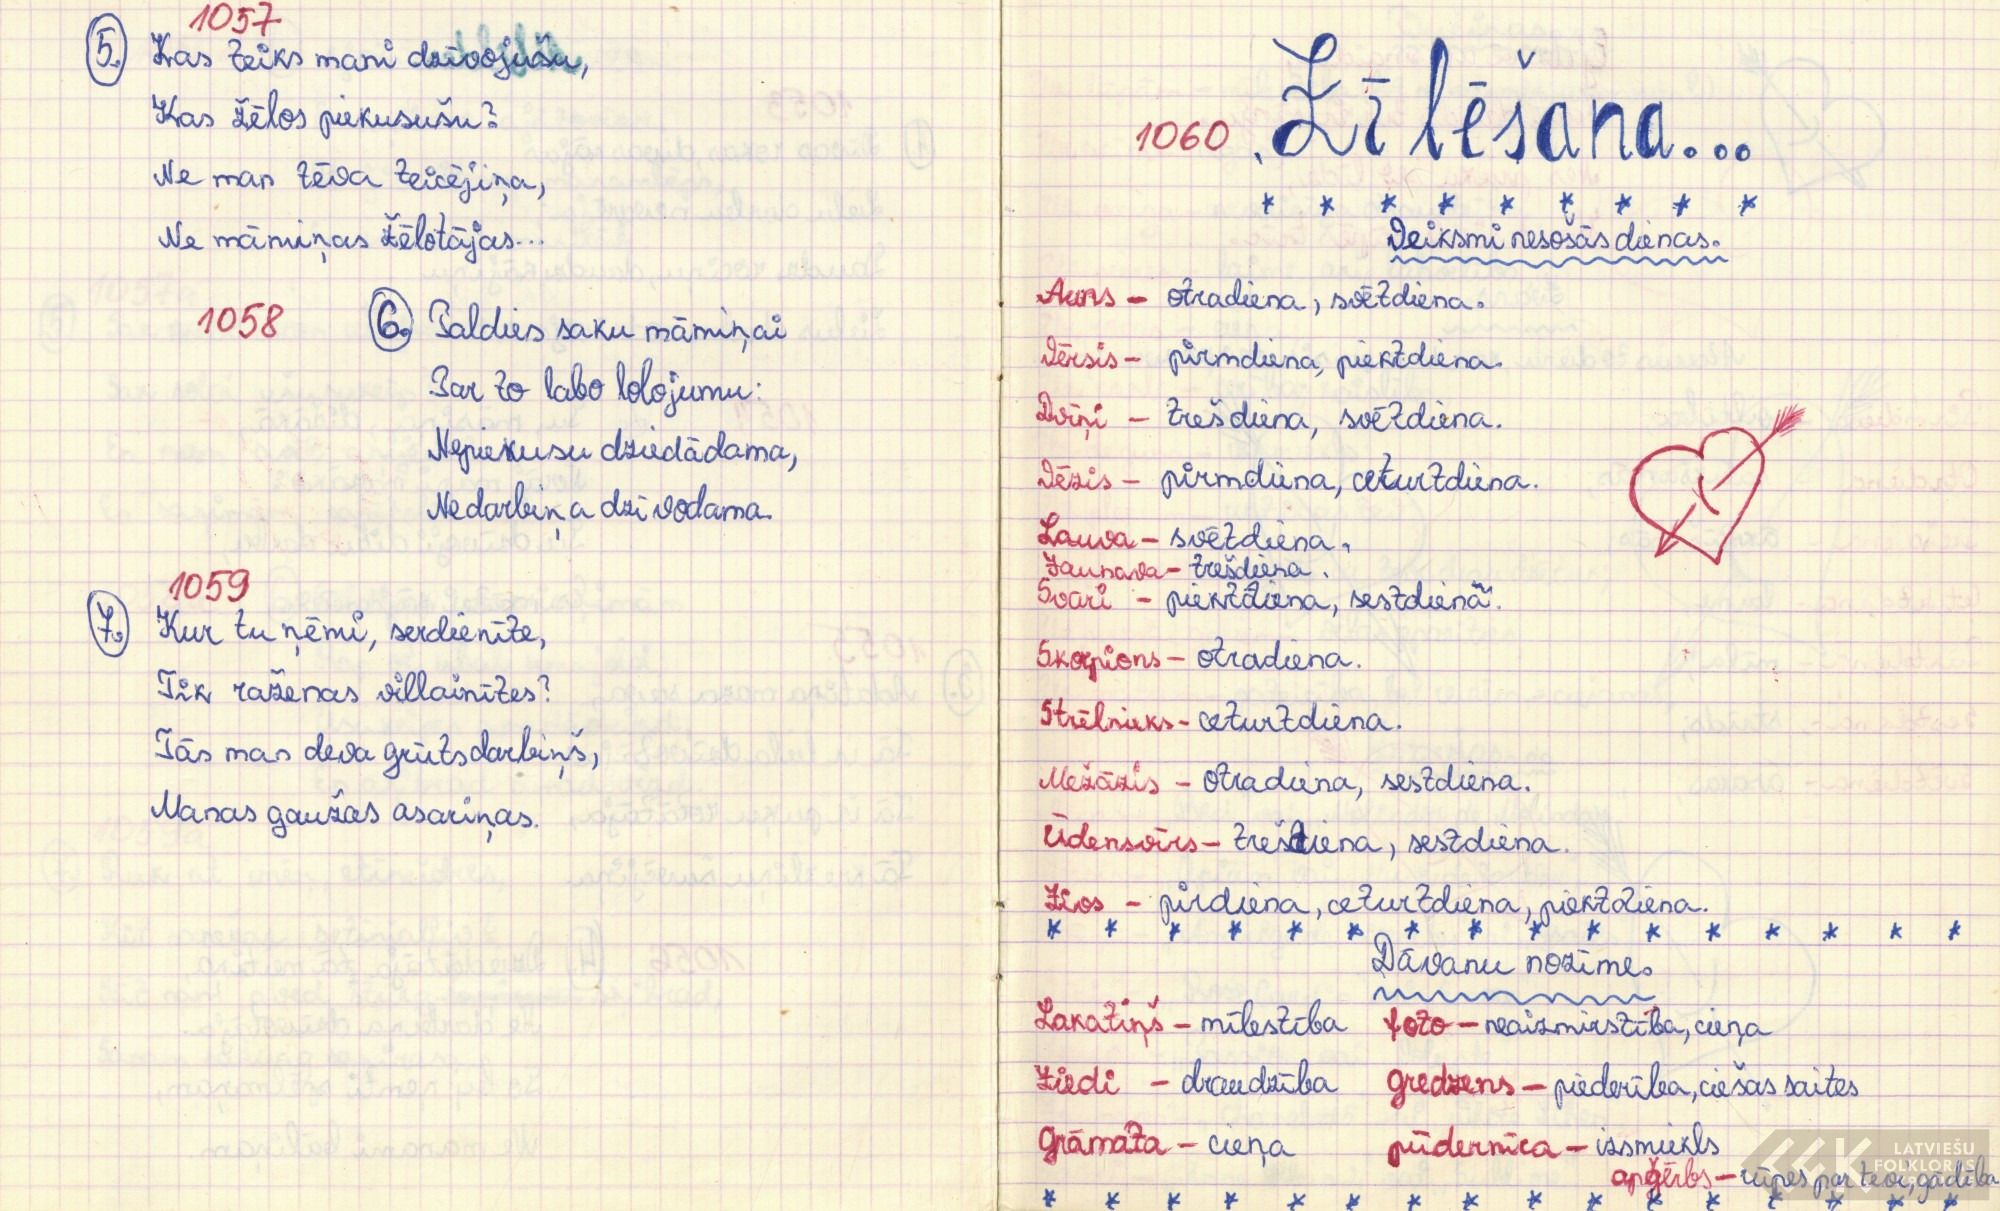 1057
5. Kas teiks mani dzīvojušu,
Kas žēlos piekusušu?
Ne man tēva teicējiņa,
Ne māmiņas žēlotājas...
1058
6. Paldies saku māmiņai
Par to labo lolojumu:
Nepiekusu dziedādama,
Ne darbiņa dzīvodama.
1059
7. Kur tu ņēmi, serdienīte,
Tik raženas villainītes?
Tās man deva grūts darbiņš,
Manas gaužas asariņas.
1060 Zīlēšana...
* * * * * * * * *
Veiksmi nesošās dienas.
Auns – otradiena, svētdiena.
Vērsis – pirmdiena, piektdiena.
Dvīņi – trešdiena, svētdiena.
Vēzis – pirmdiena, ceturtdiena.
Lauva – svētdiena.
Jaunava – trešdiena.
Svari – piektdiena, sestdiena.
Skorpions – otradiena.
Strēlnieks – ceturtdiena.
Mežāzis – otradiena, sestdiena.
Ūdensvīrs – trešdiena, sestdiena.
Zivs – pirdiena, ceturtdiena, piektdiena.
* * * * * * * * * * * * * * * *
Dāvanu nozīme.
Lakatiņš – mīlestība foto – neaizmirstība, cieņa
Ziedi – draudzība gredzens – piederība, ciešas saites
Grāmata – cieņa pūdernīca – izsmiekls
apģērbs – rūpes par tevi, gādība
* * * * * * * * * * * * * * * *
LATVIEŠU
FOLKLORAS